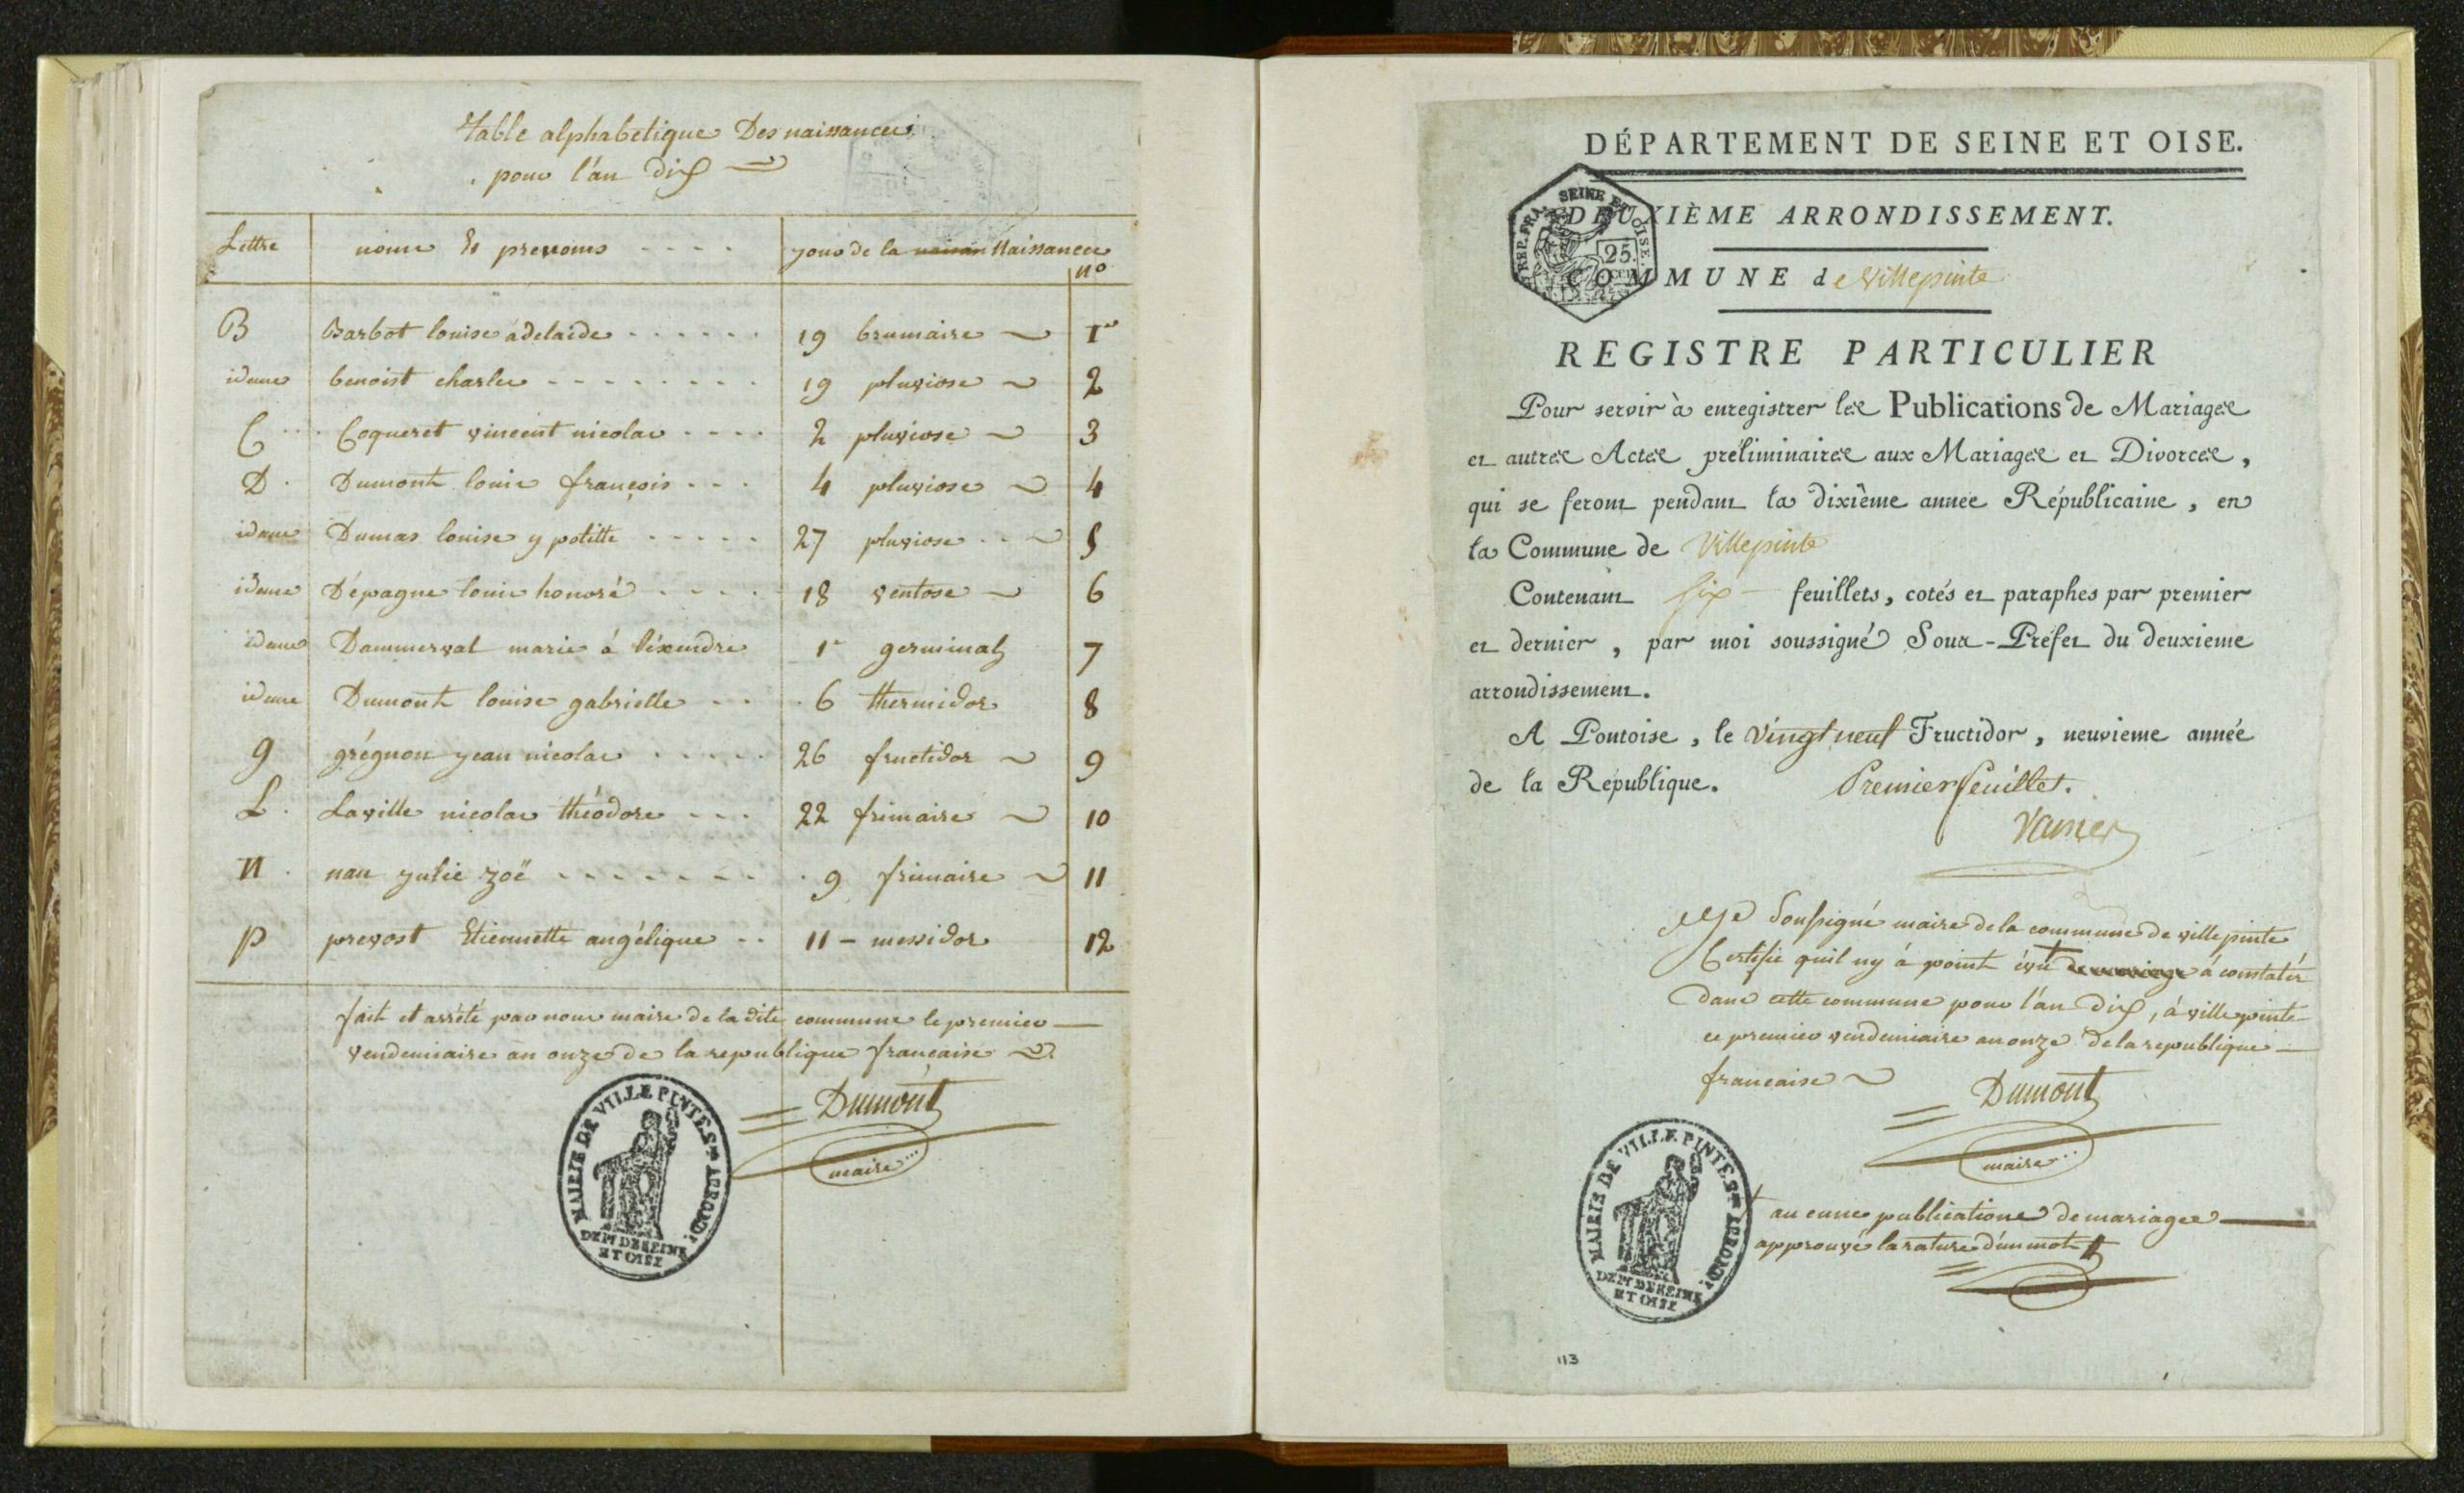 table alphabetique Des naissances
pour l'an dix
Lettre noms Et prenoms - - - - jour de la naissan Naissance
no
B Barbot louise adelaide - - - - - - 19 brumaire 1er
idem benoist charles - - - - - - - - 19 pluviose 2
C Coqueret vincent nicolas - - - - 2 pluviose 3
D Dumont louis françois - - - 4 pluviose 4
idem Dumas louise ypolitte - - - - - 27 pluviose 5
idem Dépagne louis honoré - - - - 18 ventose 6
idem Dammerval marie á léxendre 1er germinal 7
idem Dumont louise gabrielle - - - 6 thermidor 8
g grégnon jean nicolas - - - - - 26 fructidor 9
L Laville nicolas théodore - - - 22 frimaire 10
N nau julie zoë - - - - - - - 9 frimaire 11
P prevost Etiennette angélique - - 11 - messidor 12
fait et arrêté par nous maire de la dite commune le premier
vendemiaire an onze de la republique française
Dumont
maire
MAIRIE DE VILLE PINTE Sme ARROND.
DEPt DE SEINE
ET OISE
DÉPARTEMENT DE SEINE ET OISE.
REP. FRA. SEINE ET OISE.
25.
DEUXIÈME ARRONDISSEMENT.
COMMUNE de Villepinte
REGISTRE PARTICULIER
Pour servir à enregistrer les Publications de Mariages
et autres Actes préliminaires aux Mariages et Divorces,
qui se feront pendant la dixième année Républicaine, en
la Commune de Villepinte
Contenant six feuillets, cotés et paraphés par premier
et dernier, par moi soussigné Sous-Préfet du deuxieme
arrondissement.
A Pontoise, le Vingt neuf Fructidor, neuvieme année
de la République. Premier feuillet.
Je Soussigné maire de la commune de villepinte
Certifie quil ny á point évu + de mariage á constatér
dans cette commune pour l'an dix, á villepinte
ce premier vendemiaire an onze de la republique
francaise
Dumont
maire
MAIRIE DE VILLE PINTE Sme ARROND.
DEPt DE SEINE
ET OISE
+ au cunes publications de mariages
approuvé la rature d'un mot
113